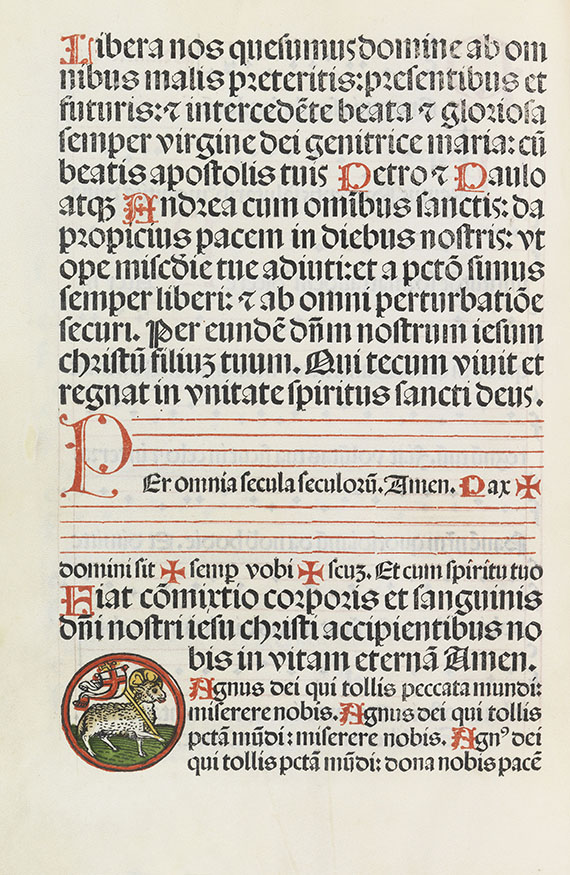 Libera nos quesumus domine ab om
nibus malis preteritis: presentibus et
futuris: ⁊ intercedēte beata ⁊ gloriosa
semper virgine dei genitrice maria: cū
beatis apostolis tuis Petro ⁊ Paulo
atqꝫ Andrea cum omībus sanctis: da
propicius pacem in diebus nostris: vt
ope miscd̄ie tue adiuti: et a pctō simus
semper liberi: ⁊ ab omni perturbatiōe
securi. Per eundē dn̄m nostrum iesum
christū filiuꝫ tuum. Qui tecum viuit et
regnat in vnitate spiritus sancti deus.
PEr omnia secula seculorū. Amen. Pax ✠
domini sit ✠ semꝑ vobi ✠ scuꝫ. Et cum spiritu tuo
Fiat cōmixtio corporis et sanguinis
dn̄i nostri iesu christi accipientibus no
bis in vitam eternā Amen.
Agnus dei qui tollis peccata mundi:
miserere nobis. Agnus dei qui tollis
pctā mūdi: miserere nobis. Agnꝰ dei
qui tollis pctā mūdi: dona nobis pacē